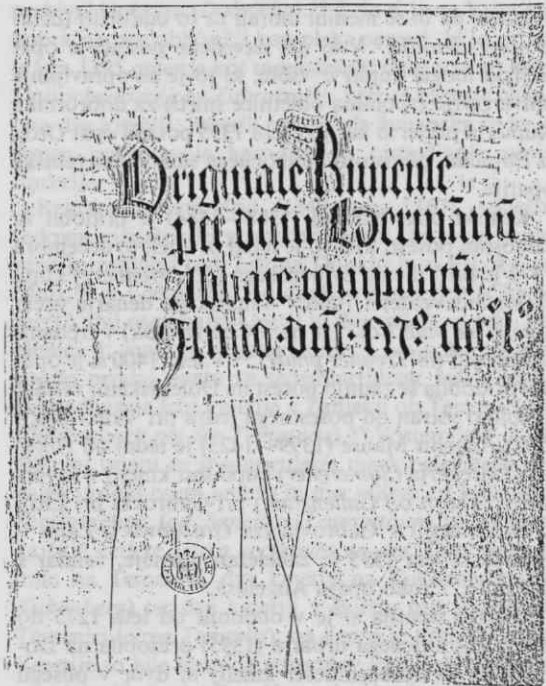 Originale Runense
per dnm̄ Hermānū
Abbatē compilatū
Anno · dnī · Mº cccº lº